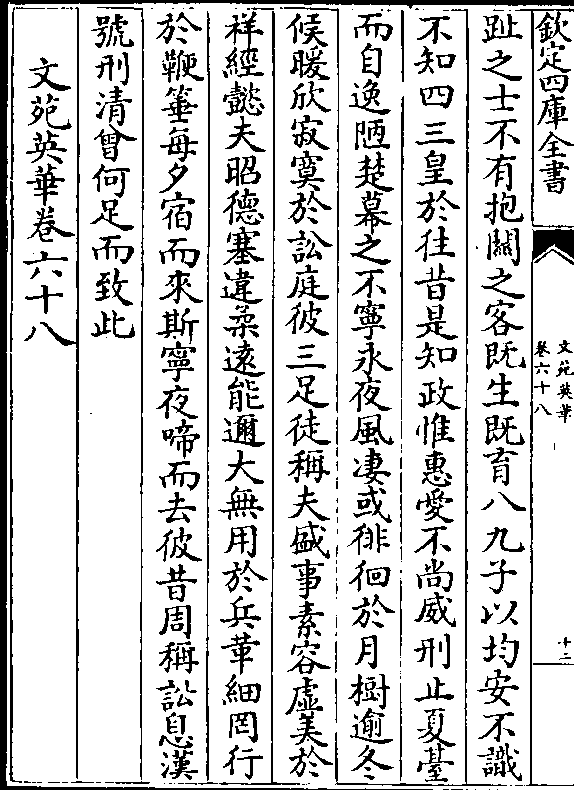 欽定四庫全書
文苑英華
卷六十八
十二
趾之士不有抱關之客既生既育八九子以均安不識
不知四三皇於往昔是知政惟惠愛不尚威刑止夏臺
而自逸陋楚幕之不寧永夜風淒或徘徊於月樹逾冬
候暖欣寂寞於訟庭彼三足徒稱夫盛事素容虛美於
祥經懿夫昭德塞違柔遠能邇大無用於兵革細罔行
於鞭箠每夕宿而來斯寧夜啼而去彼昔周稱訟息漢
號刑清曾何足而致此
文苑英華卷六十八